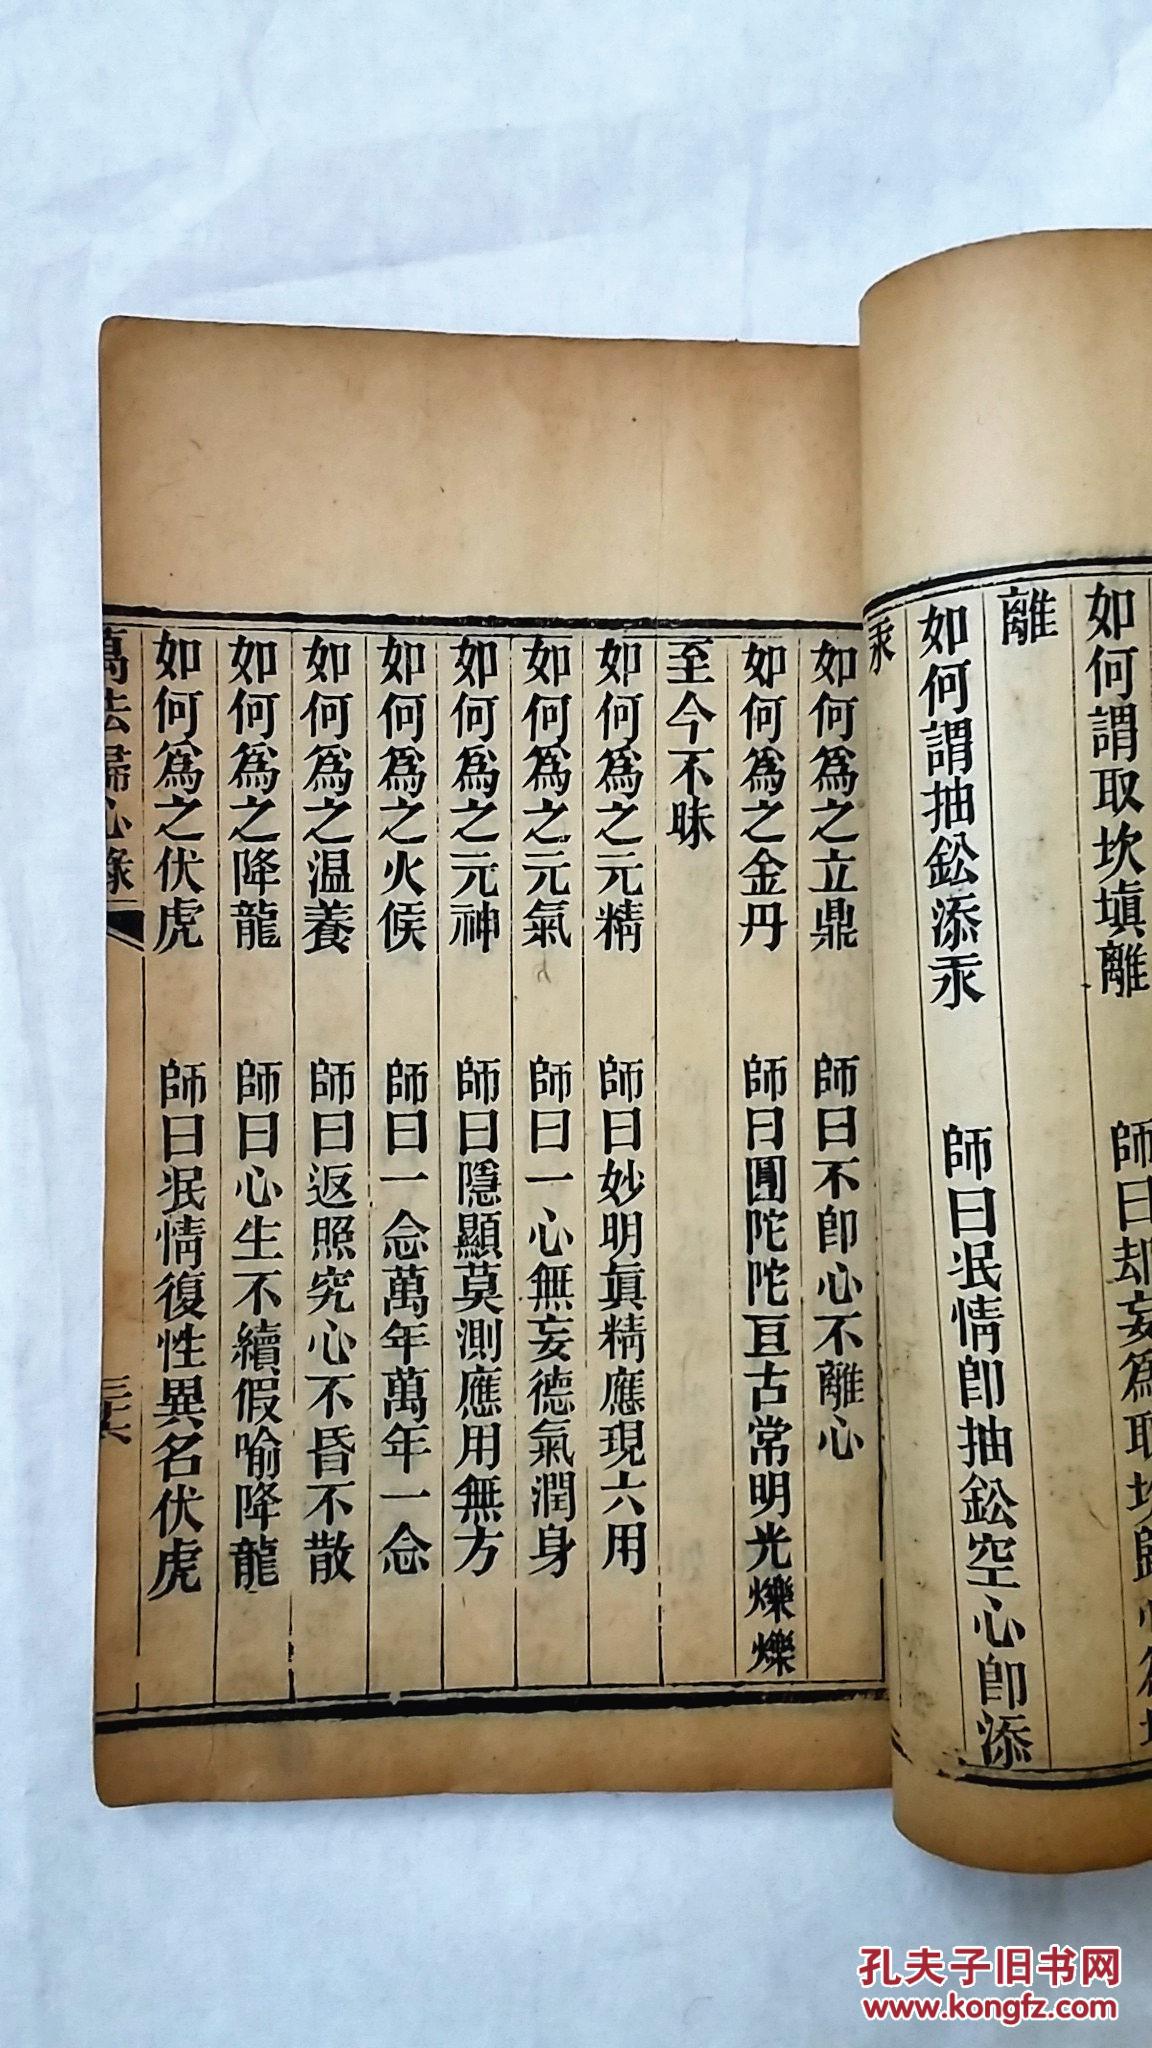 如何謂取坎塡離　師曰却妄爲取坎歸心爲塡
離
如何謂抽鈆添汞　師曰泯情卽抽鈆空心卽添
汞
如何爲之立鼎　師曰不卽心不離心
如何爲之金丹　師曰團陀陀亘古常明光爍爍
至今不昧
如何爲之元精　師曰妙明眞精應現六用
如何爲之元氣　師曰一心無妄德氣潤身
如何爲之元神　師曰隱顯莫測應用無方
如何爲之火候　師曰一念萬年萬年一念
如何爲之温養　師曰返照究心不昏不散
如何爲之降龍　師曰心生不續假喻降龍
如何爲之伏虎　師曰泯情復性異名伏虎
萬法歸心錄
三六
孔夫子旧书网
www.kongfz.com